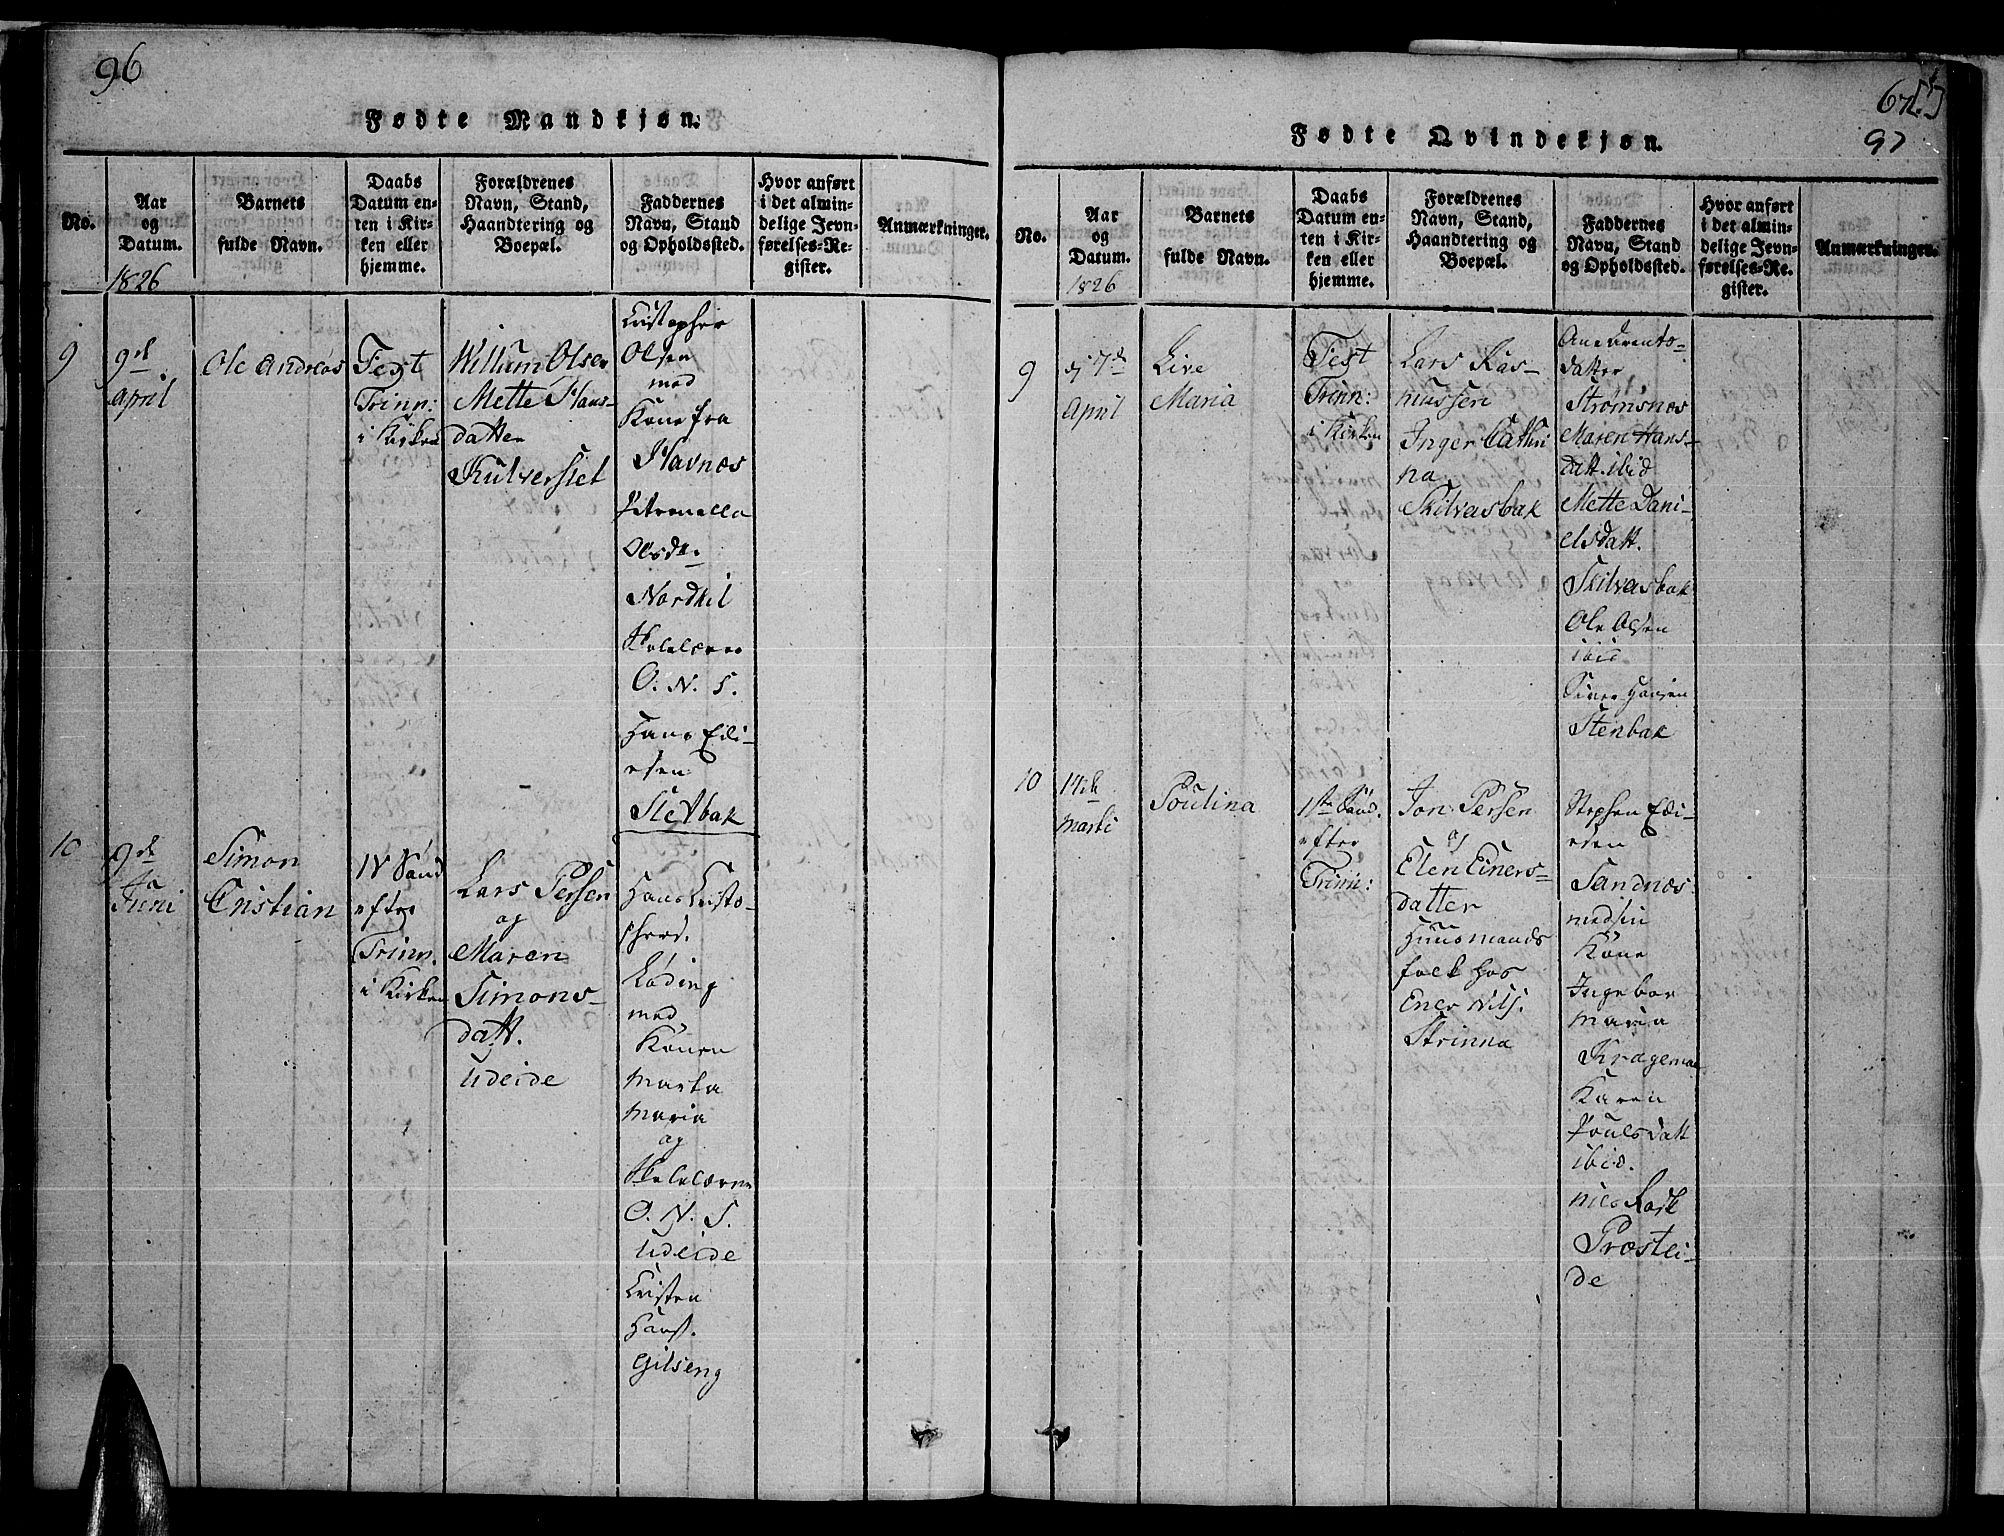 96
Fødte Mandkjøn.
No.
Aar
og
Datum.
1826
Barnets
fulde Navn.
Daabs
Datum en-
ten i Kir-
ken eller
hjemme.
Forældrenes
Navn, Stand,
Haandtering og
Boepæl.
Faddernes
Navn, Stand
og Opholdssted.
Hvor anført
i det almin-
delige Jevn-
førelses-Re-
gister.
Anmærkninger.
9
9de
April
Ole Andreas
Fest
Trinn:
i Kirken
Willum Olsen
Mette Hans-
datter
Kulverslet
Cristopher
Olsen
med
Kone fra
Havnæs
Petronella
Olsdr.
Nordkil
Skolelærer
O. N. S.
Hans Edi-
esen
Sletbak
10
9de
Juni
Simon
Cristian
IV Sønd
efter
Trinn.
i Kirken
Lars Persen
og
Maren
Simons-
datt.
Udeide
Hans Cristo-
phers.
Løding
med
Konen
Marta
Maria
og
Skolelærer
O. N. S.
Udeide
Cristen
Hans.
Gilseng
67
97
Fødte Qvindekjøn.
No.
Aar
og
Datum.
1826
Barnets
fulde Navn.
Daabs
Datum en-
ten i Kir-
ken eller
hjemme.
Forældrenes
Navn, Stand,
Haandtering og
Boepæl.
Faddernes
Navn, Stand
og Opholdssted.
Hvor anført
i det almin-
delige Jevn-
førelses-Re-
gister.
Anmærkninger.
9
April
Live
Maria
Fest
Trinn:
i Kirken
Lars Ras-
mussen
Inger Cathri
na
Skilvasbak
Ane Arents-
datter
Strømsnæs
Maren Hans-
datt. ibid
Mette Dani-
elsdatt.
Skilvasbak
Ole Olsen
ibid
Hansen
Stenbak
10
14de
Marti
Poulina
1ste Sønd.
efter
Trinn:
Jon Persen
og
Elen Einers-
datter
Huusmands
folk hos
Ener Nils.
Strinna
Stephen Edi-
esen
Sandnæs
med sin
Kone
Ingebor
Maria
Kragemoe
Karen
Poulsdatt
ibid.
Nils Rask
Præstei-
de